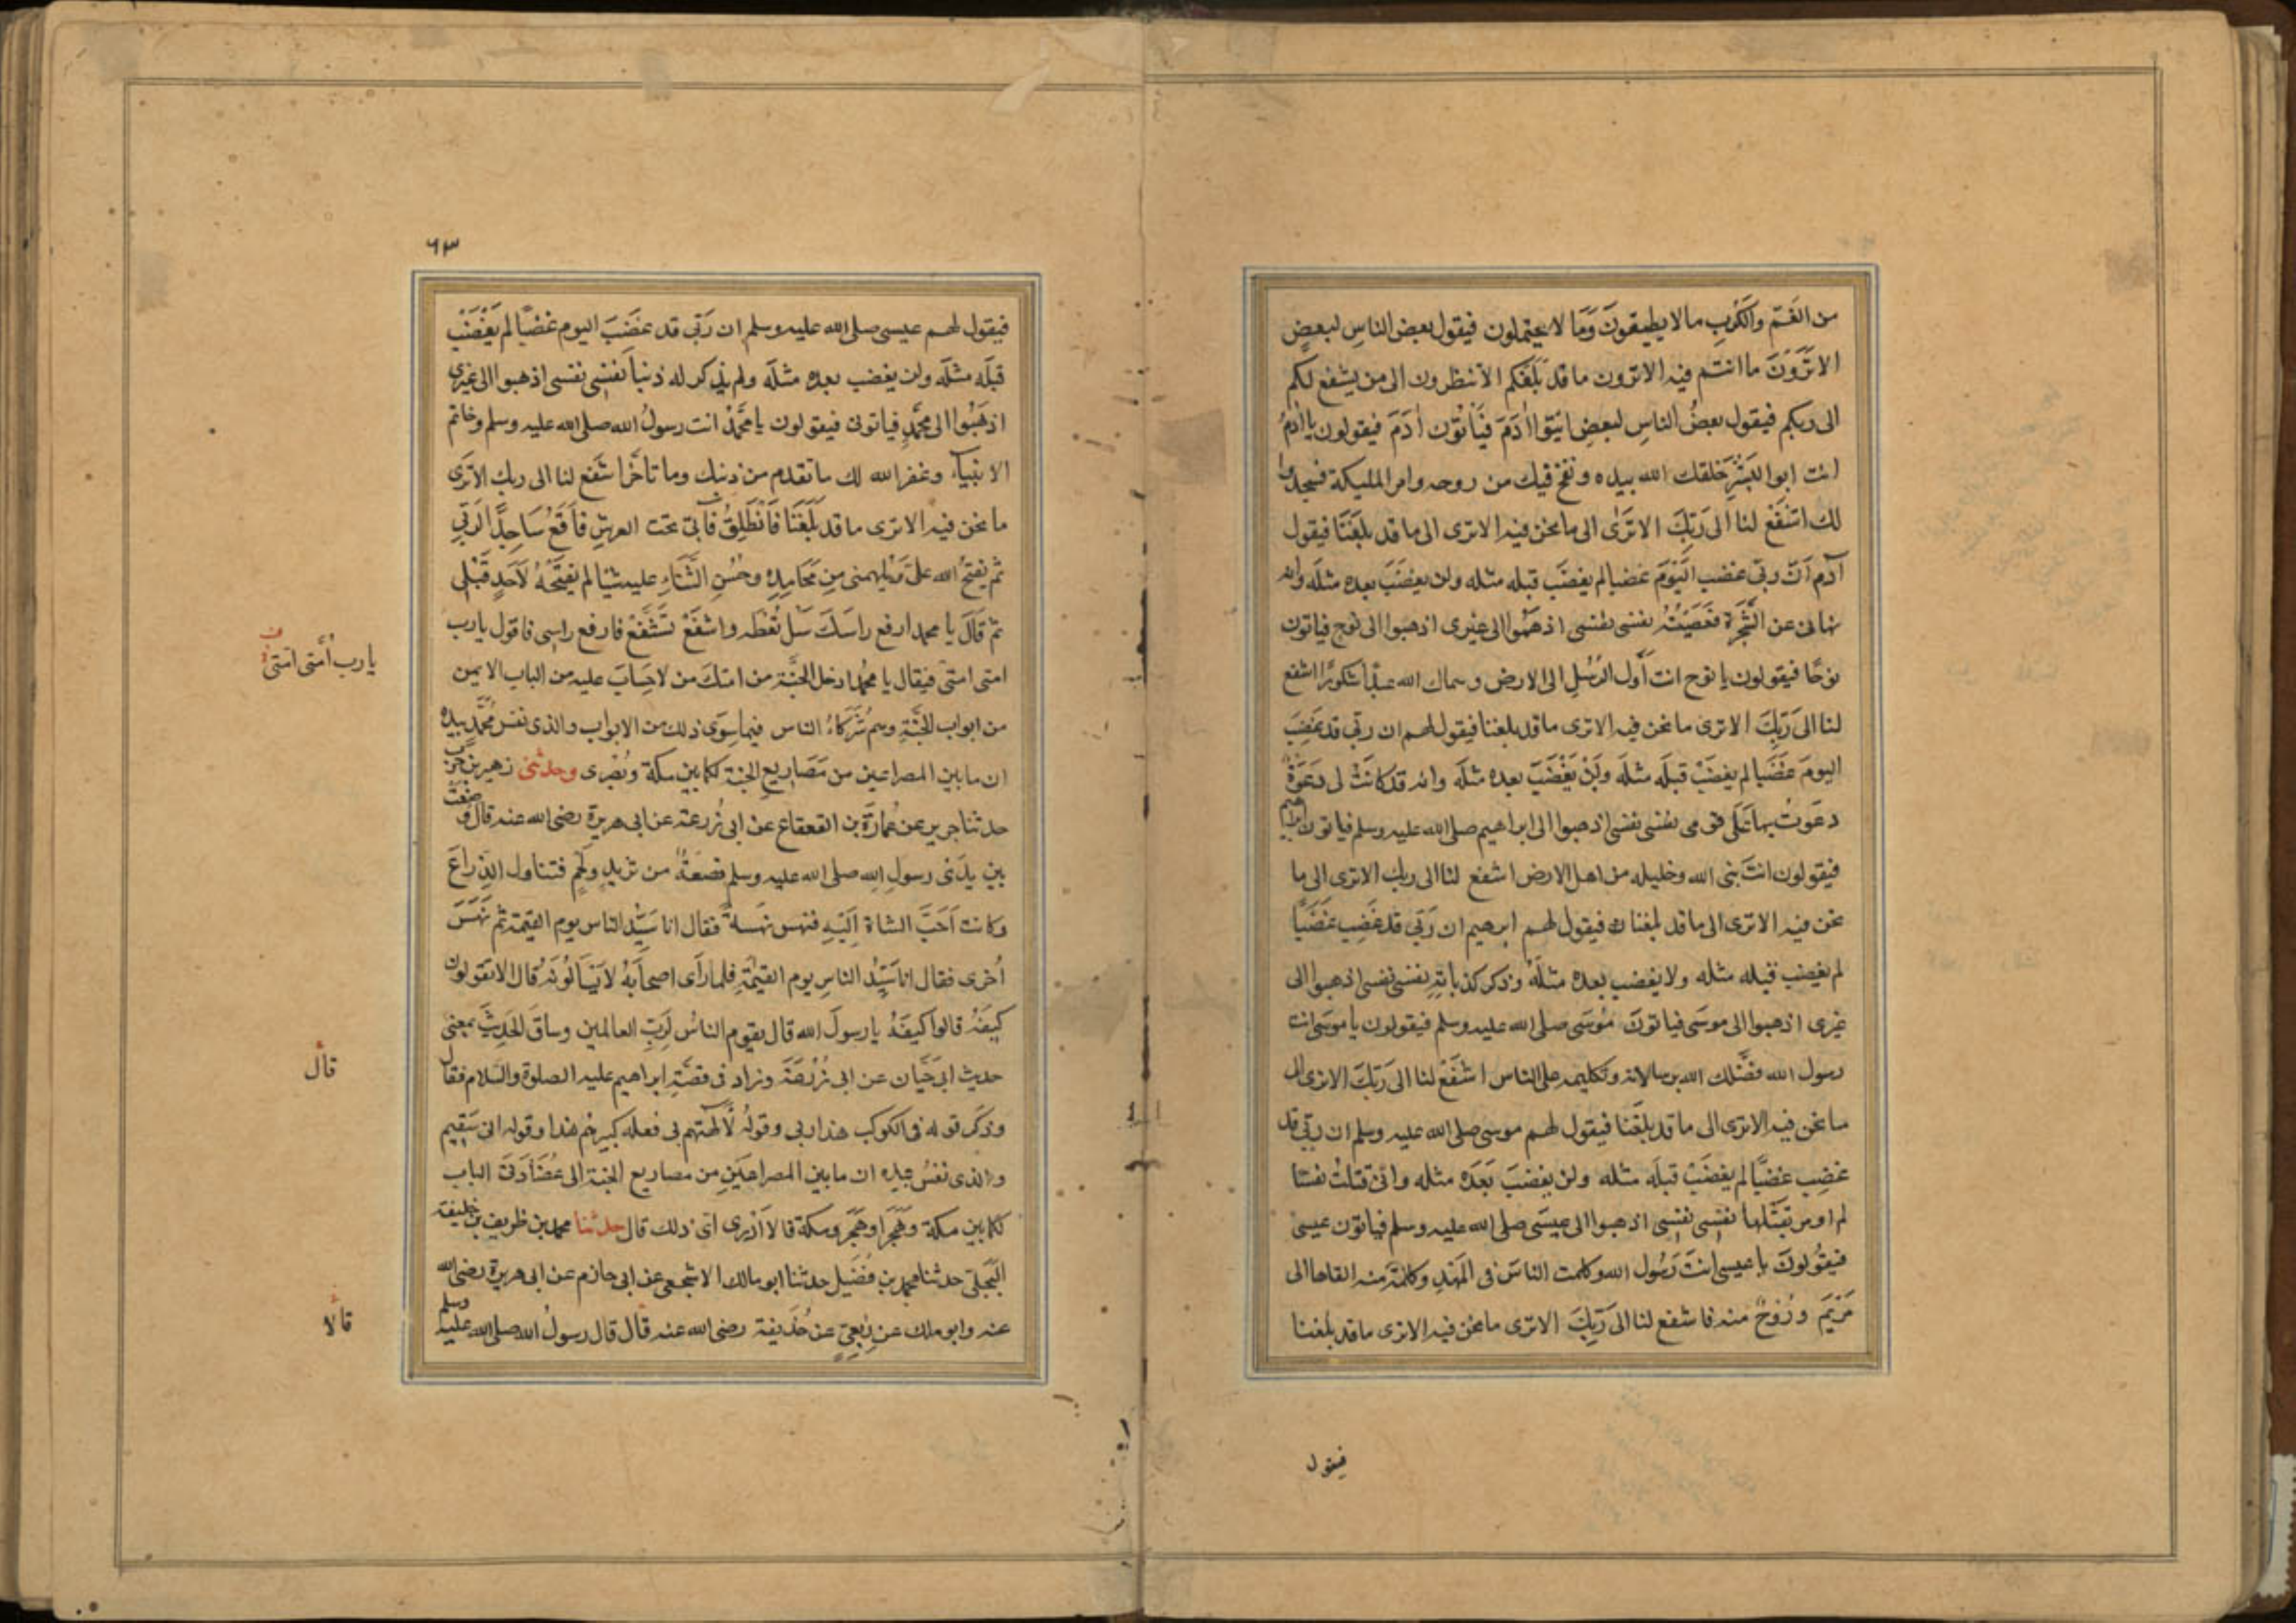 من الغَمّ والكَربِ مالا يطيقونَ وَمَا لا يحتملون فيقول بعض الناسِ لبعضٍ
الا تَرَوْنَ ما انتم فيه الا ترون ما قد بَلَغكم الا تنظرون الى من يشفع لكم
الى ربكم فيقول بعضُ الناسِ لبعضٍ ايتوا اٰدَمَ فَيَأتُوْن اٰدَمَ فيقولون يا اٰدَمُ
انت ابو البَشَرِ خلقك الله بيده ونفخ فيك من روحه وامر الملٰيكة فسجدوا
لك اشفَعْ لنا الى رَبِّكَ الا تَرَىٰ الى ما نحن فيه الا ترى الى ما قد بلَغَنَا فيقول
آدم اَنَّ ربّى غضب اليَوْمَ غضبا لم يغضَب قبله مثله ولن يغضَبَ بعده مثلَه وانه
نهانى عن الشَّجَرَة فَعَصَيْتُهُ نفسى نفسى اذهَبُوا الى غيرى اذهبوا الى نوح فياتون
نوحًا فيقولون يا نوح انت اَوّل الرُسُلِ الى الارض وسماك الله عبدًا شكورًا اشفع
لنا الى رَبِّكَ الا ترى ما نحن فيه الا ترى ما قد بلغنا فيقول لهم ان ربّى قد غَضِبَ
اليومَ غضَبا لم يغضَبْ قبلَه مثلَه ولَنْ يَغْضَبَ بعده مثلَه وانه قد كانَتْ لى دَعَوَةٌ
دعَوتُ بها عَلَى قومى نفسى نفسى اذهبوا الى ابراهيم صلى الله عليه وسلم فياتون ابراهيم
فيقولون انتَ نبى الله وخليله من اهل الارض اشفع لنا الى ربك الا ترى الى ما
نحن فيه الا ترى الى ما قد بلغنا فيقول لهم ابرهيم ان رَبّى قد غَضِب غَضَبًا
لم يغضب قبله مثله ولا يغضب بعده مثلَهُ وذكر كذباتِهِ نفسى نفسى اذهبوا الى
غيرى اذهبوا الى موسَى فياتونَ مُوسَى صلى الله عليه وسلم فيقولون يا موسَى انت
رسول الله فضَّلك الله برسالاته وتكليمه على الناس اشفَعْ لنا الى رَبِّكَ الا ترى الى
ما نحن فيه الا ترى الى ما قد بلَغَنا فيقول لهم موسى صلى الله عليه وسلم ان ربّى قد
غضِب غضبًا لم يغضَبْ قبلَه مثله ولن يغضبَ بَعَدَه مثله وانى قتلتُ نفسا
لم اومر بقَتْلِها نفسى نفسى اذهبوا الى عيسَى صلى الله عليه وسلم فياتون عيسى
فيقُولونَ يا عيسى انتَ رَسُول الله وكلمت الناسَ فى المَهْدِ وكلمَةٌ منه القاها الى
مَرْيَمَ ورُوْحٌ منه فاشفع لنا الى رَبِّكَ الا ترى ما نحن فيه الا ترى ما قد بلغنا
فيقول
٦٣
فيقول لهم عيسى صلى الله عليه وسلم ان رَبّى قد غَضَبَ اليوم غضبًا لم يَغْضَبْ
قبلَه مثلَه ولن يغضب بعده مثلَه ولم يذكر له ذنبًا نفسى نفسى اذهبوا الى غيرى
اذهَبُوا الى محَمَّدٍ فياتونى فيقولون يا محَمَّدْ انت رسولُ الله صلى الله عليه وسلم وخاتم
الانبياء وغفر الله لك ما تقدم من ذنبك وما تاخّر اشفع لنا الى ربك الا تَرَى
ما نحن فيه الا ترى ما قد بَلَغَنَا فَاَنْطَلِقُ فآتى تحت العرشِ فاَقَعُ سَاجِدًا لرَبّى
ثم يفتحُ الله علىَّ ويُلهِمنى مِن مَحَامِدِهِ وحُسْنِ الثَّنَاءِ عليه شيئا لم يفتَحْهُ لاَحَدٍ قَبْلى
ثم قَالَ يا محمد ارفع راسَكَ سَلْ تُعْطَه واشفَعْ تُشَفَّعْ فارفع راسى فاقول يا رب
امتى امتى فيقال يا محَمّد ادخل الجَنَّة من امتكَ من لا حِسَابَ عليه من الباب الايمن
من ابواب الجَنَّةِ وهم شُرَكَاءُ الناس فيما سِوَى ذلك من الابواب والذى نفس مُحَمَّدٍ بيده
ان ما بين المصراعين من مَصَارِيعِ الجنة لكما بين مكة وبُصرى وحدثنى زهير بن حرب
حدثنا جرير عن عُمارَةَ بن القعقاع عن ابى زُرعة عن ابى هريرة رضى الله عنه قال وُضِعَتْ
بين يدَىْ رسول الله صلى الله عليه وسلم قصعَةٌ من ثريدٍ ولحم فتناول الذِراعَ
وكانت اَحَبَّ الشاة اِلَيْهِ فنهس نهسةً فقال انا سَيّدُ الناس يوم القيٰمة ثم نَهَسَ
اُخرى فقال انا سَيّدُ الناسِ يوم القيٰمَةِ فلما رأى اصحابَهُ لا يَسْأَلُونَهُ قال الا تقولون
كَيفَهْ قالوا كيفَهْ يا رسولَ الله قال يقوم الناسُ لِرَبِّ العالمين وساقَ الحَدِيثَ بمعنى
حديث ابى حَيَّان عن ابى زُرْعَةَ وزاد فى قصَّةِ ابراهيم عليه الصلوة والسلام فقال
وذكَر قوله فى الكوكب هذا ربى وقولَهُ لآلهتهم بل فعله كبيرهُم هذا وقوله انى سَقِيم
والذى نفسُ محمد بيده ان ما بين المصراعَيْنِ من مصاريع الجنة الى عُضَادَتَى الباب
لكما بين مكة وهَجَر اوهَجَر ومكة قال لا اَدْرى اىَّ ذلك قال حدثنا محمد بن طريف بن خليفة
البَجَلىّ حدثنا محمد بن فُضَيل حدثنا ابو مالك الاشجعى عن ابى حازم عن ابى هريرة رضى الله
عنه وابو ملك عن رِبْعِىّ عن حُذَيفة رضى الله عنه قال قال رسولُ الله صلى الله عليه وسلم
يا رب اُمّتى امّتى
قال
قالا